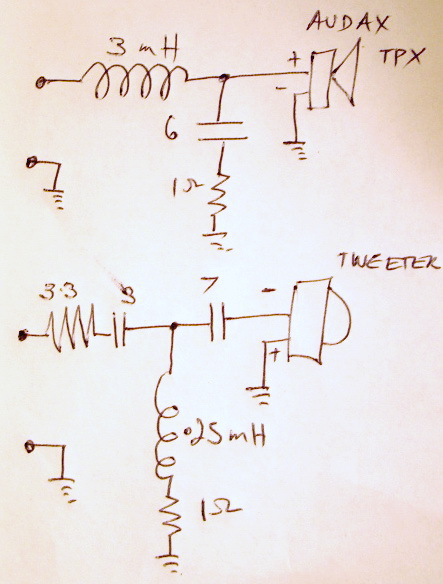 AUDAX
3 mH
TPX
+
-
6
1Ω
TWEETER
3.3
3
7
-
+
.25mH
1Ω